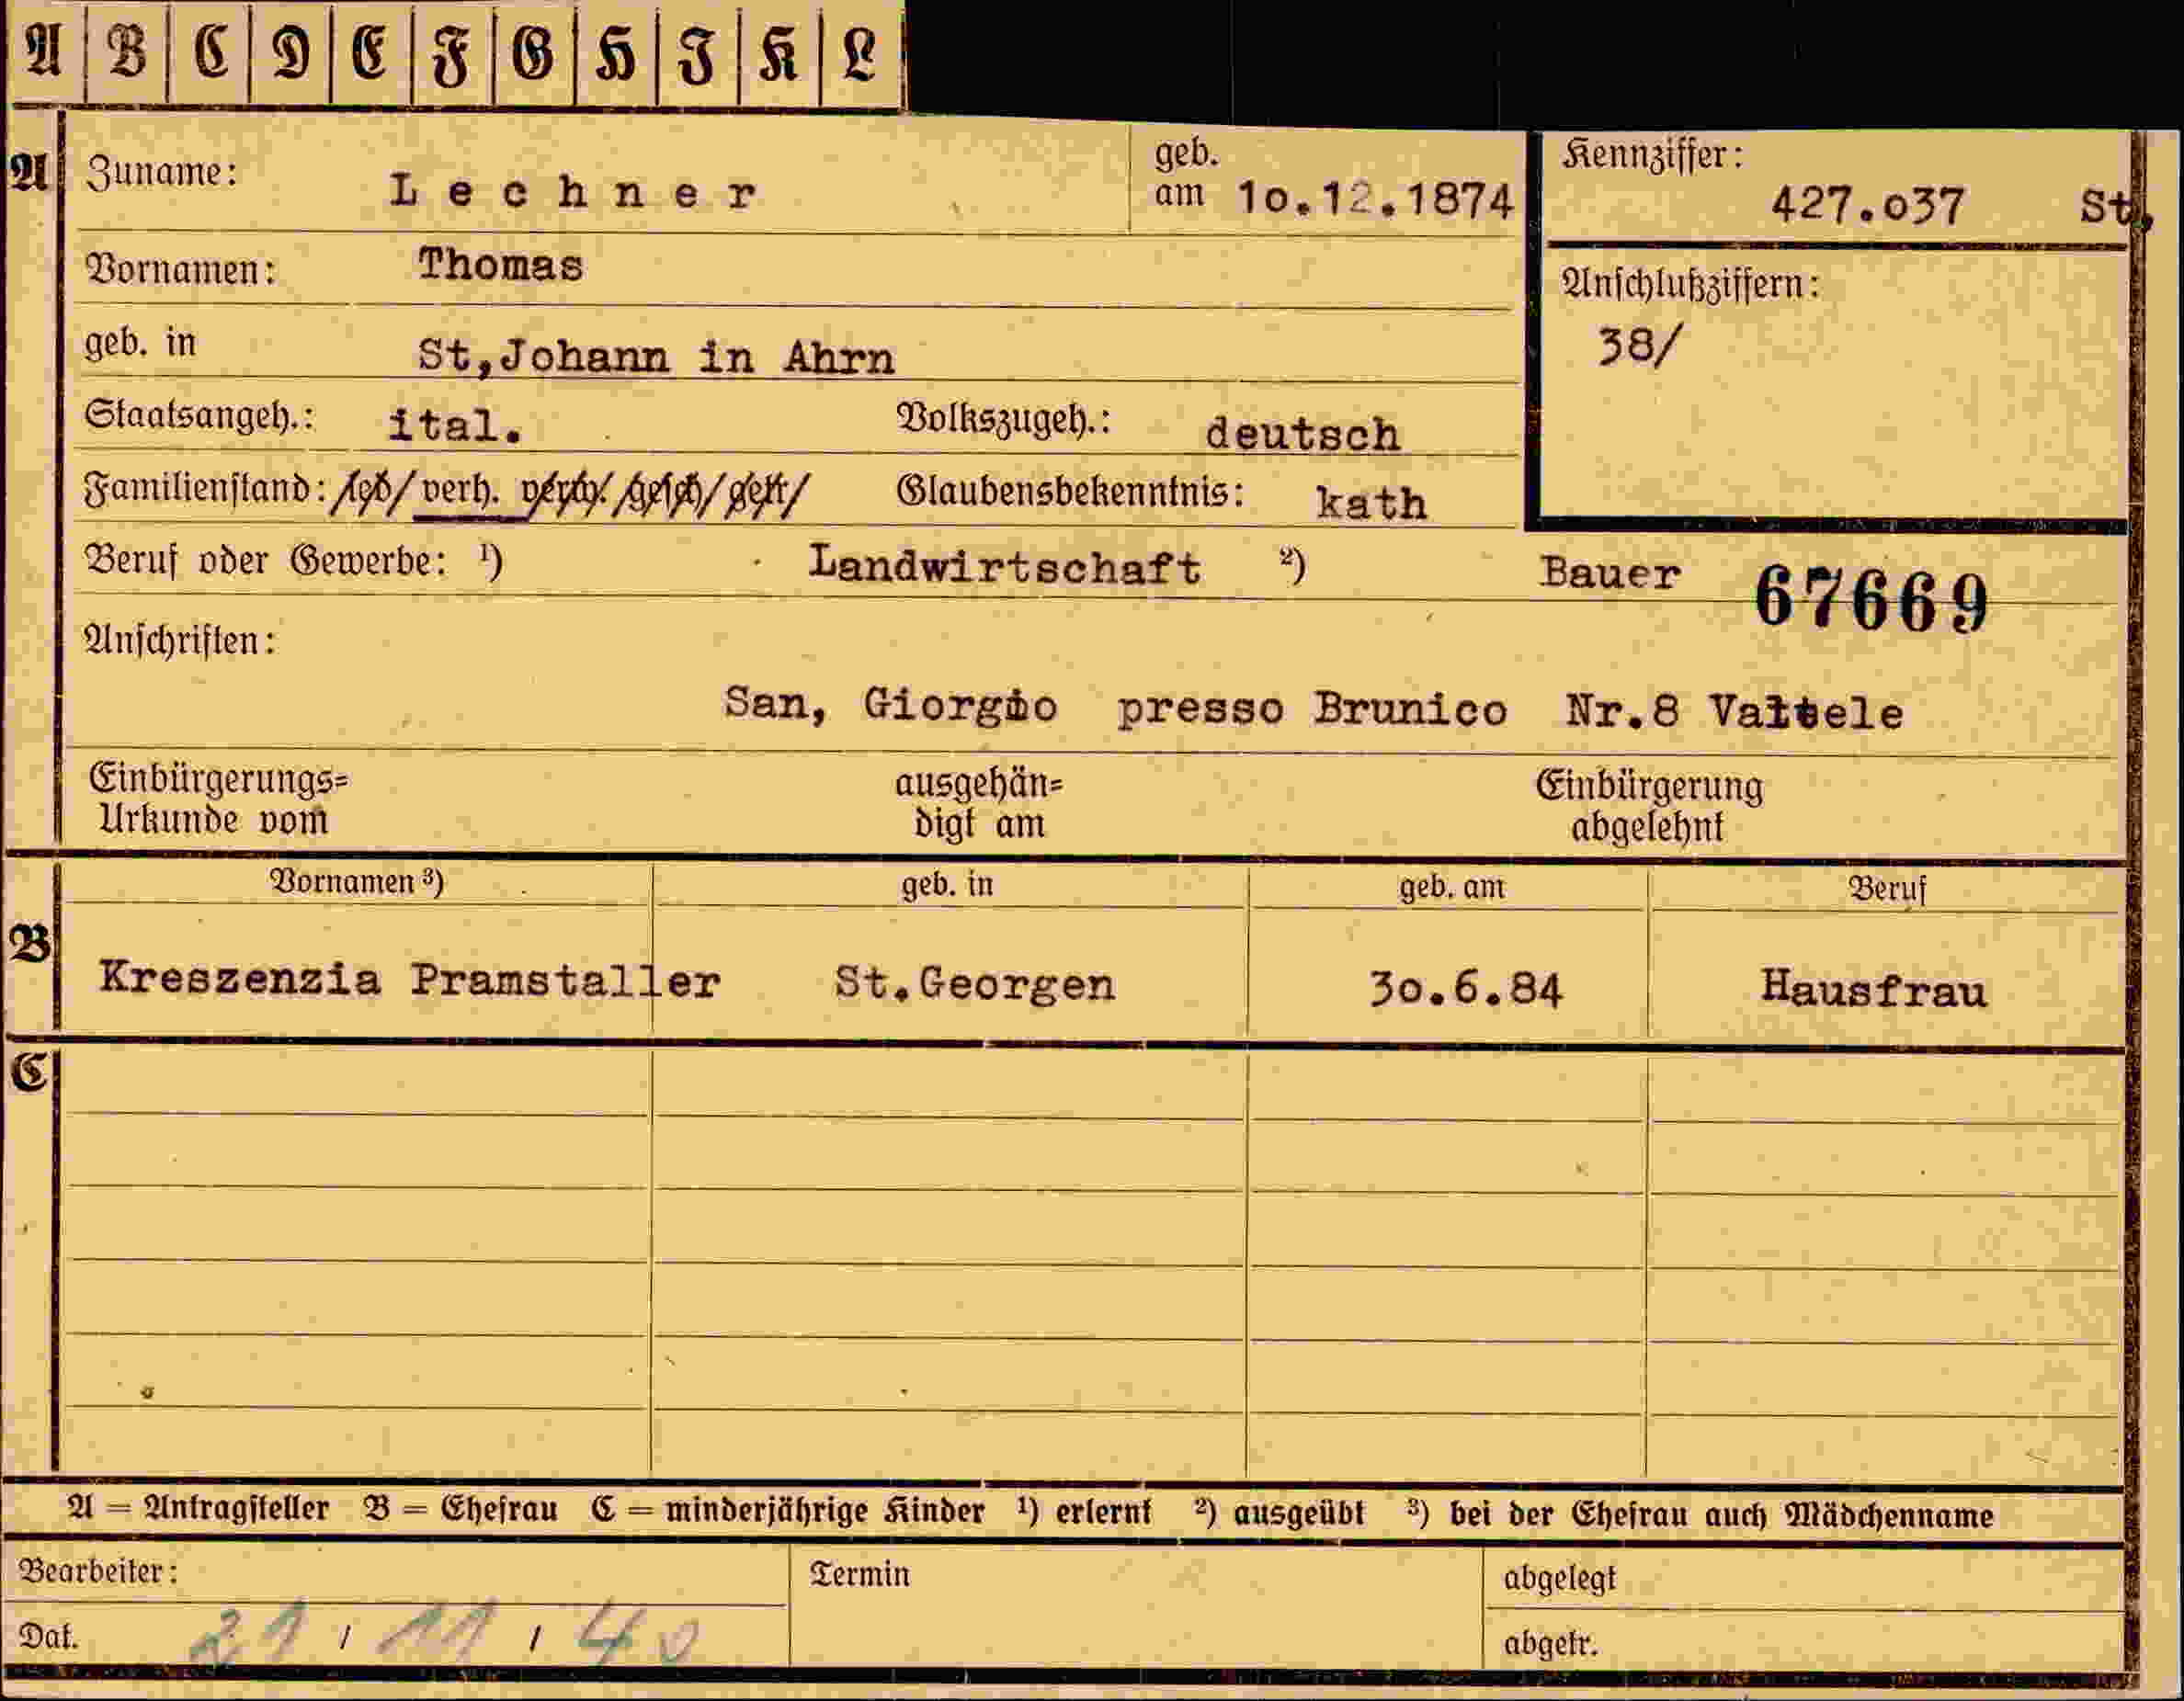 A B C D E F G H I K L
A Zuname: Lechner geb. am 10.12.1874 Kennziffer: 427.037 St,
Vornamen: Thomas Anschlußziffern:
geb. in St,Johann in Ahrn 38/
Staatsangeh.: ital. Volkszugeh.: deutsch
Familienstand: led. verh. verw. gesch. getr. Glaubensbekenntnis: kath
Beruf oder Gewerbe: ¹) Landwirtschaft ²) Bauer 67669
Anschriften:
San, Giorgio presso Brunico Nr.8
Einbürgerungs= ausgehän= Einbürgerung
Urkunde vom digt am abgelehnt
Vornamen ³) geb. in geb. am Beruf
B Kreszenzia Pramstaller St.Georgen 30.6.84 Hausfrau
C
A = Antragsteller B = Ehefrau C = minderjährige Kinder ¹) erlernt ²) ausgeübt ³) bei der Ehefrau auch Mädchenname
Bearbeiter: Termin abgelegt
Dat. 21 / 11 / 40 abgetr.